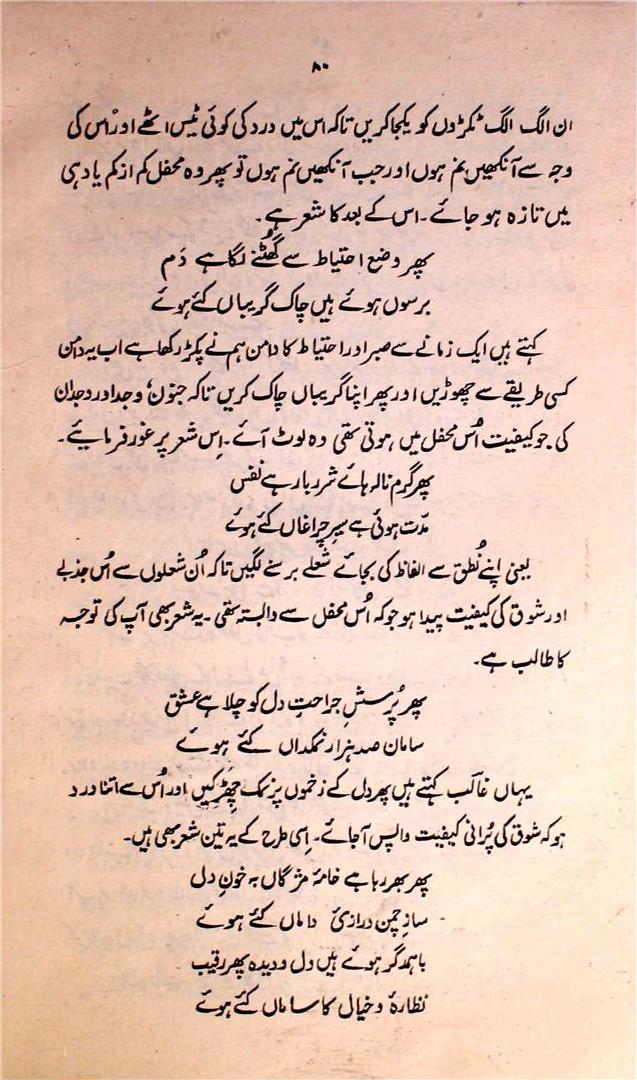 ۸۰
ان الگ الگ ٹکڑوں کو یکجا کریں تاکہ اس میں درد کی کوئی ٹیس اٹھے اور اُس کی
وجہ سے آنکھیں نم ہوں اور جب آنکھیں نم ہوں تو پھر وہ محفل کم از کم یاد ہی
میں تازہ ہو جائے۔ اس کے بعد کا شعر ہے۔
پھر وضع احتیاط سے گھُٹنے لگا ہے دَم
برسوں ہوئے ہیں چاک گریباں کئے ہوئے
کہتے ہیں ایک زمانے سے صبر اور احتیاط کا دامن ہم نے پکڑ رکھا ہے اب یہ دامن
کسی طریقے سے چھوڑیں اور پھر اپنا گریباں چاک کریں تاکہ جنون، وجد اور وجدان
کی جو کیفیت اُس محفل میں ہوتی تھی وہ لوٹ آئے۔ اِس شعر پر غور فرمایئے۔
پھر گرم نالہ ہائے شرر بار ہے نفس
مدّت ہوئی ہے سیرِ چراغاں کئے ہوئے
یعنی اپنے نُطق سے الفاظ کی بجائے شعلے برسنے لگیں تاکہ اُن شعلوں سے اُس جذبے
اور شوق کی کیفیت پیدا ہو جو کہ اُس محفل سے وابستہ تھی۔ یہ شعر بھی آپ کی توجہ
کا طالب ہے۔
پھر پُرسشِ جراحتِ دل کو چلا ہے عشق
سامان صد ہزار نمکداں کئے ہوئے
یہاں غالب کہتے ہیں پھر دل کے زخموں پر نمک چھڑکیں اور اُس سے اتنا درد
ہو کہ شوق کی پُرانی کیفیت واپس آ جائے۔ اِسی طرح کے یہ تین شعر بھی ہیں۔
پھر بھر رہا ہے خامۂ مژگاں بہ خونِ دل
سازِ چمن درازیٔ داماں کئے ہوئے
باہمدگر ہوئے ہیں دل و دیدہ پھر رقیب
نظارہ و خیال کا ساماں کئے ہوئے